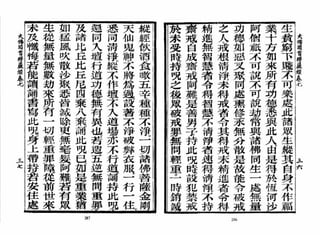 大佛頂首楞嚴經卷七
三六
生貧窮下賤不可樂處此諸眾生縱其自身不作福
業十方如來所有功德悉與此人由是得於恆河沙
阿僧祇不可說不可說劫常與諸佛同生一處無量
功德如惡叉聚同處熏修永無分散是故能令破戒
之人戒根清淨未得戒者令其得戒未精進者令得
精進無智慧者令得智慧不清淨者速得清淨不持
齋戒自成齋戒阿難是善男子持此呪時設犯禁戒
於未受時持呪之後眾破戒罪無問輕重一時銷滅
236
大佛頂首楞嚴經卷七
三七
縱經飲酒食噉五辛種種不淨一切諸佛菩薩金剛
天仙鬼神不將為過設著不淨破弊衣服一行一住
悉同清淨縱不作壇不入道場亦不行道誦持此呪
還同入壇行道功德無有異也若造五逆無間重罪
及諸比丘比丘尼四棄八棄誦此呪已如是重業猶
如猛風吹散沙聚悉皆滅除更無毫髮阿難若有眾
生從無量無數劫來所有一切輕重罪障從前世來
未及懺悔若能讀誦書寫此呪身上帶持若安住處
237